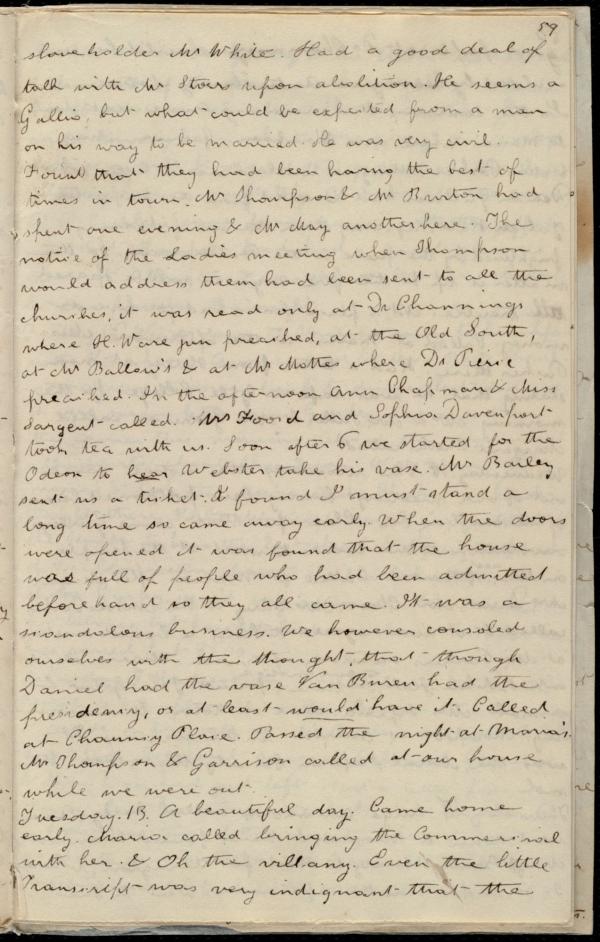 59
slaveholder Mr White. Had a good deal of
talk with Mr Stoers upon abolition. He seems a
Gallio, but what could be expected from a man
on his way to be married. He was very civil.
Found that they had been having the best of
times in town. Mr Thompson & Mr Burton had
spent one evening & Mr May another here. The
notice of the Ladies meeting when Thompson
would address them had been sent to all the
churches, it was read only at Dr Channings
where H. Ware jun preached, at the Old South,
at Mr Ballow's & at Mr Mottes where Dr Pierie
preached. In the afternoon Ann Chapman & Miss
Sargent called. Mrs Foord and Sophia Davenport
took tea with us. Soon after 6 we started for the
Odeon to hear Webster take his vase. Mr Bailey
sent us a ticket. I found I must stand a
long time so came away early. When the doors
were opened it was found that the house
was full of people who had been admitted
beforehand so they all came. It was a
scandalous business. We however consoled
ourselves with the thought, that though
Daniel had the vase Van Buren had the
presidency, or at least would have it. Called
at Chauncy Place. Passed the night at Maria's.
Mr Thompson & Garrison called at our house
while we were out.
Tuesday. 13. A beautiful day. Came home
early. Maria called bringing the Commercial
with her. & Oh the villany. Even the little
Transcript was very indignant that the